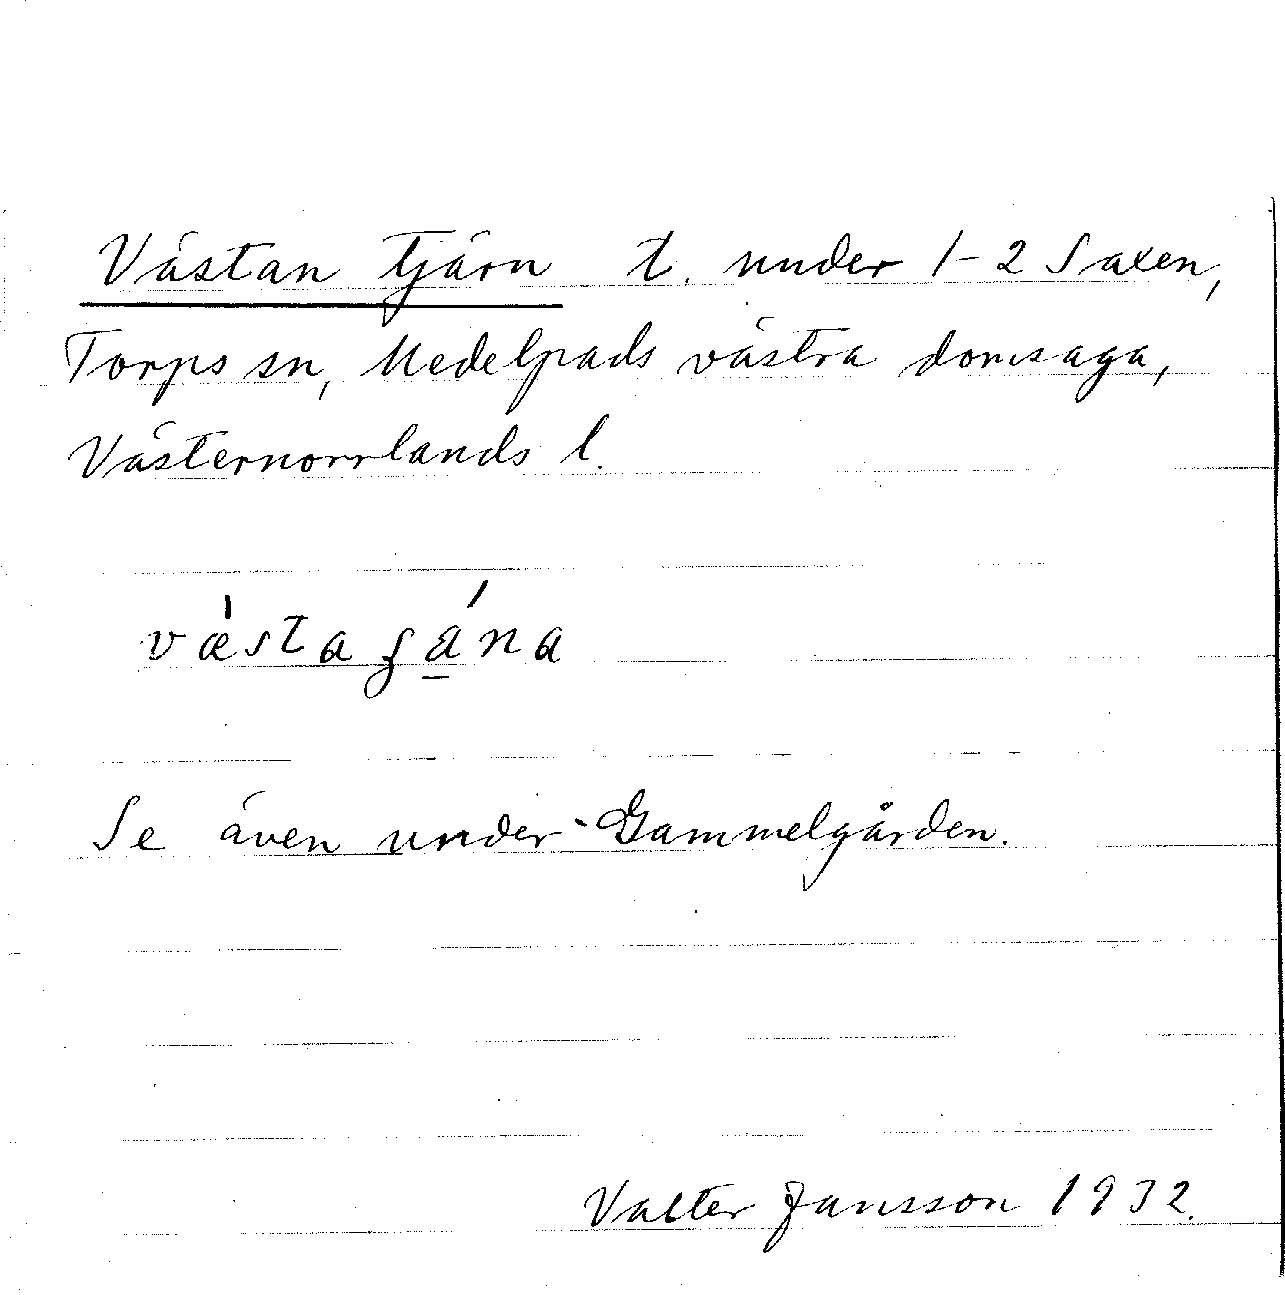 Västan tjärn t. under 1-2 Saxen,
Torps sn, Medelpads västra domsaga,
Västernorrlands l.
Se även under Gammelgården.
Valter Jansson 1932.